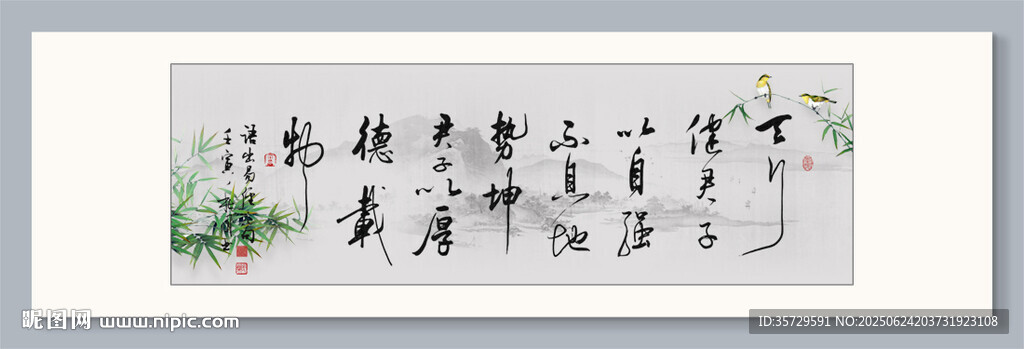 天行
健君子
以自强
不息地
势坤
君子以厚
德载
物
语出易经
壬寅
昵图网 www.nipic.com
ID:35729591 NO:20250624203731923108